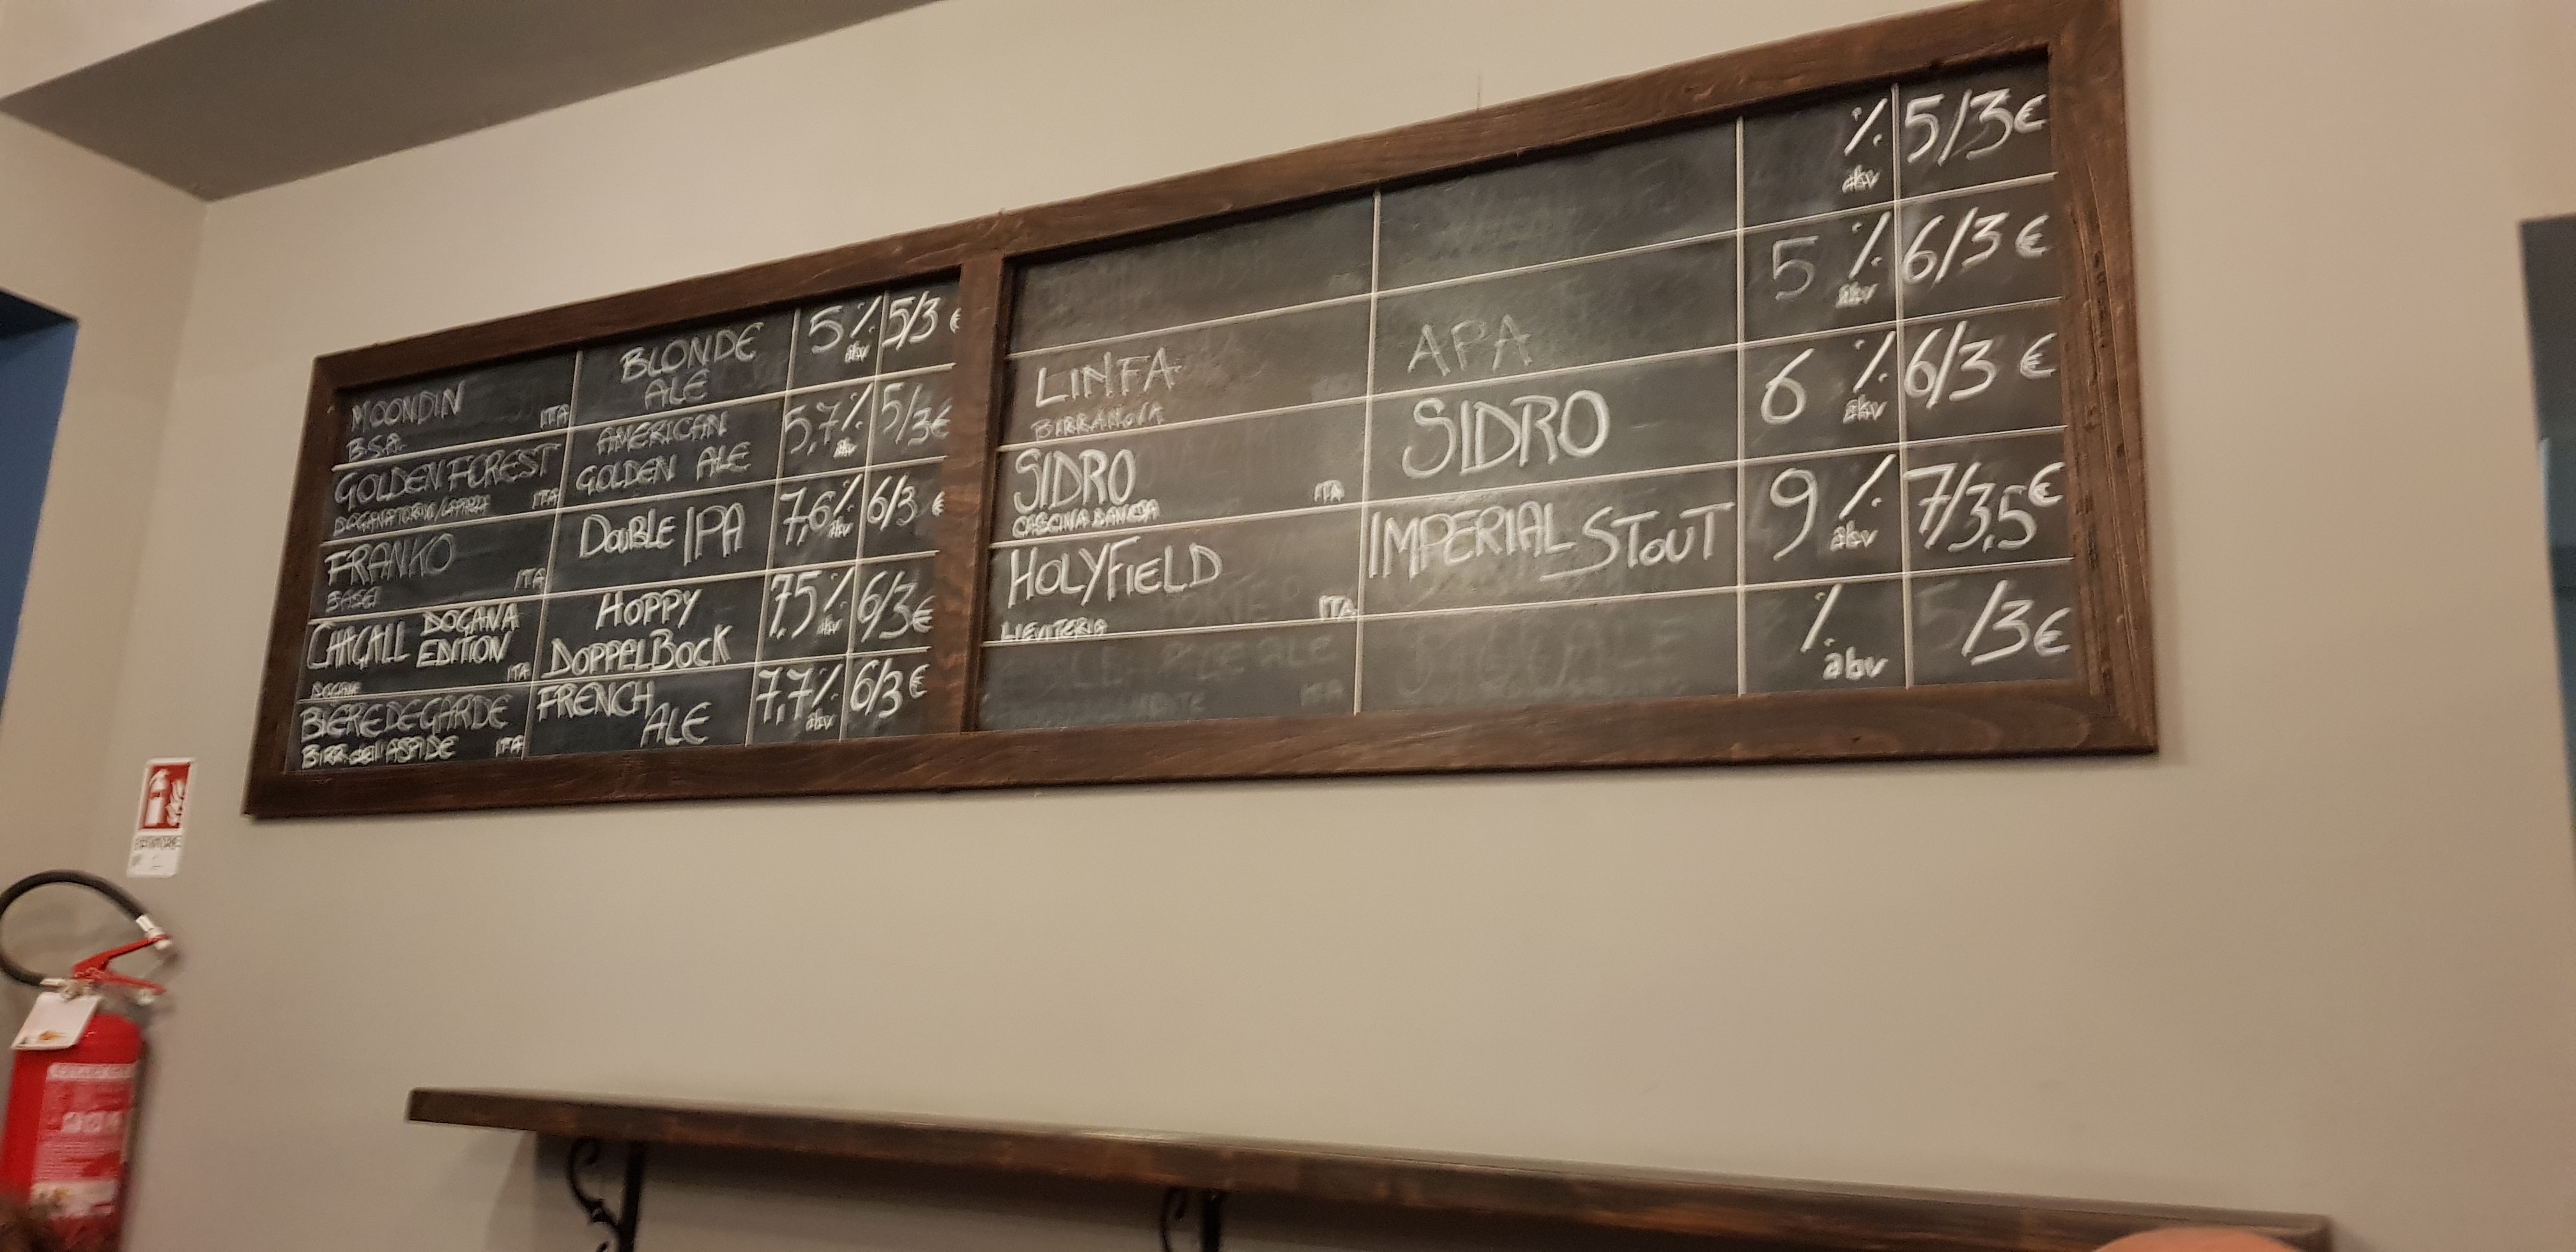 MOONDIN ITA BLONDE ALE 5 % abv 5/3 €
B.S.A.
GOLDEN FOREST ITA AMERICAN GOLDEN ALE 5,7 % abv 5/3 €
FRANKO ITA DOUBLE IPA 7,6 % abv 6/3 €
BASEI
CHAGALL DOGANA EDITION ITA HOPPY DOPPELBOCK 7,5 % abv 6/3 €
BIERE DE GARDE FRENCH ALE 7,7 % abv 6/3 €
BIRR. dell'ASPIDE ITA
% abv 5/3 €
LINFA APA 5 % abv 6/3 €
BIRRANOVA
SIDRO ITA SIDRO 6 % abv 6/3 €
CASCINA
HOLYFIELD ITA IMPERIAL STOUT 9 % abv 7/3,5 €
LIEVITERIA
% abv /3 €
ESTINTORE